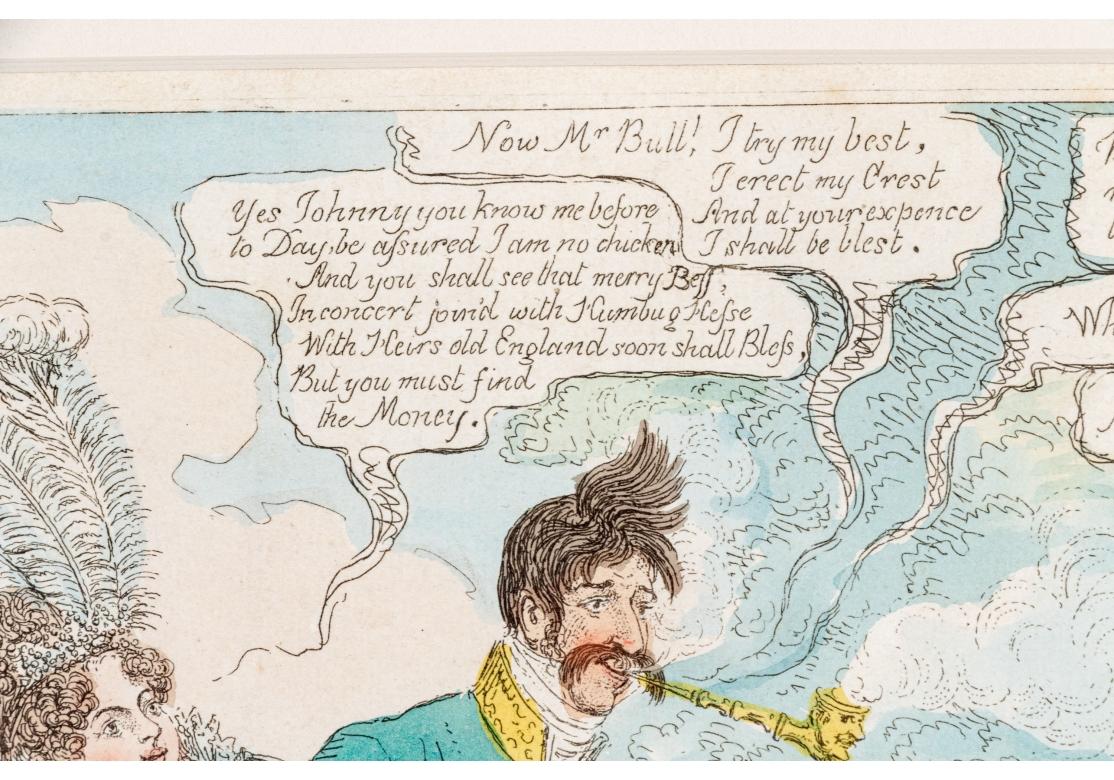 Now Mr Bull! I try my best,
I erect my Crest
And at your expence
I shall be blest.
Yes Johnny you know me before
to Day, be aſsured I am no chicken
And you shall see that merry Beſs,
In concert join'd with Humbug Heſse
With Heirs old England soon shall Bleſs,
But you must find
the Money.
Wh